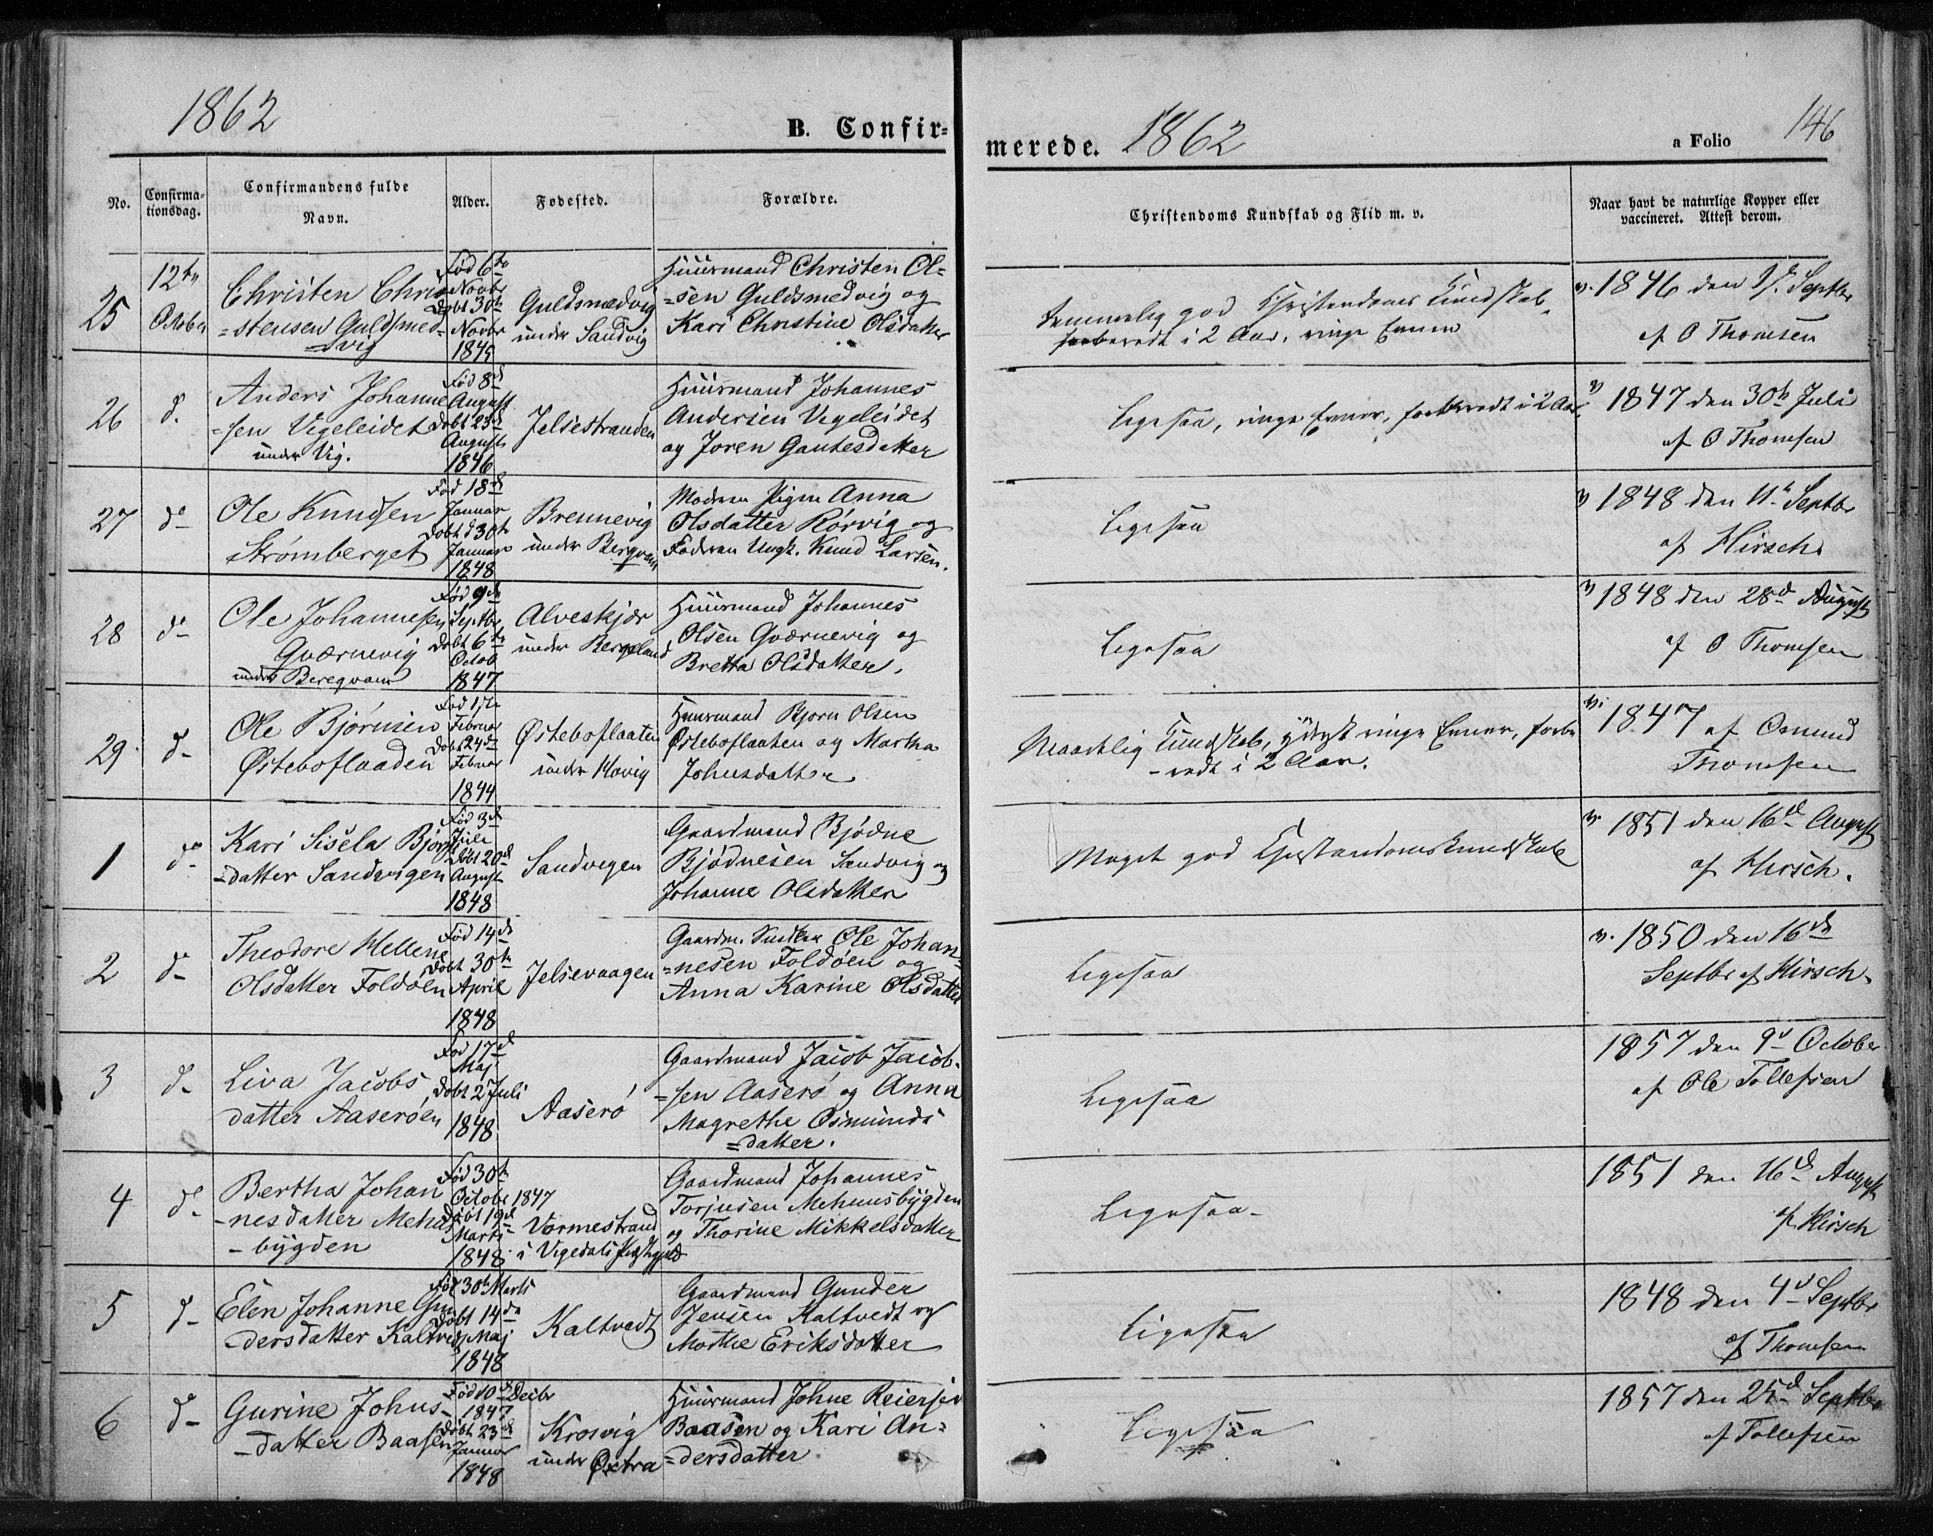 1862
B. Confir-
merede. 1862
a Folio 146
No.
Confirma-
tionsdag.
Confirmandens fulde
Navn.
Alder.
Fødested.
Forældre.
Christendoms Kundskab og Flid m. v.
Naar havt de naturlige Kopper eller
vaccineret. Attest derom.
25
12te
October
Christen Chri-
stensen Guldsmed-
=vig
Fød 6te
Novbr
Døbt 30te
Novbr
1845
Guldsmedvig
under Sandvig
Huusmand Christen Ol=
=sen Guldsmedvig og
Kari Christine Olsdatter
Temmelig god Christendoms Kundskab,
forberedt i 2 Aar, ringe Evner
v. 1846 den Septbr
af O Thomsen
26
do
Anders Johanne
=sen Vegeleidet
under Vig.
Fød 8d
August
Døbt 23d
August
1846
Jelsestranden
Huusmand Johannes
Andersen Vegeleidet
og Joren Gautesdatter
Ligesaa, ringe Evner, forberedt i 2 Aar
v 1847 den 30te Juli
af O Thomsen
27
do
Ole Knudsen
Strømberget
Fød 18d
Januar
Døbt d 30te
Januar
1848
Brennevig
under Bergvam
Moderen Pigen Anna
Olsdatter Rørvig og
Faderen Ungk. Knud Larsen.
Ligesaa
v 1848 den 11te Septbr
af Hirsch
28
do
Ole Johannesen
Gværnevig
under Beregvam
Fød 9de
Septbr
Døbt 6te
Octob
1847
Alveskjær
under Bergeland
Huusmand Johannes
Olsen Gværnevig og
Bretta Olsdatter,
Ligesaa
v 1848 den 28d August
af O Thomsen
29
do
Ole Bjørnsen
Østeboflaaden
Fød 17de
Februar
Døbt 24de
Februar
1844
Østeboflaaten
under Hovig
Huusmand Bjørn Olsen
Østeboflaaten og Martha
Johnsdatter
Maadelig Kundskab, yderst ringe Evner, forbe
-redt i 2 Aar.
v. 1847 af Osmund
Thomsen
1
do
Kari Sisela Bjørns
-datter Sandvigen
Fød 3d
Juli
Døbt 20d
August
1848
Sandvegen
Gaardmand Bjødne
Bjødnesen Sandvig og
Johanne Olsdatter
Meget god Christendomskundskab
v. 1851 den 16d August
af Hirsch.
2
do
Theodore Hellene
Olsdatter Foldøen
Fød 14d
Døbt 30te
April
1848
Jelsevaagen
Gaardm. Ole Johan-
=nesen Foldøen og
Anna Karine Olsdatter
Ligesaa
v. 1850 den 16d
Septbr af Hirsch.
3
do
Liva Jacobs
datter Aaserøen
Fød 17d
Maj
Døbt 2 Juli
1848
Aaserø
Gaardmand Jacob Jacob-
=sen Aaserø og Anna
Magrethe Osmunds
=datter.
Ligesaa
1857 den 9d October
af Ole Tollefsen
4
do
Bertha Johan
-nesdatter Mehus
-bygden
Fød 30te
Octobr 1847
Døbt 19d
Marts
1848.
Vormestrand
i Vigedals Præstegjeld
Gaardmand Johannes
Torjusen Mehuusbygden
og Thorine Mikkelsdatter
Ligesaa-
1851 den 16d August
af Hirsch
5
do
Elen Johanne Gun
-dersdatter Kaltvedt
Fød 30te Marts
Døbt 14de
Maj
1848
Kaltvedt
Gaardmand Gunder
Jensen Kaltvedt og
Marthe Eriksdatter
Ligesaa
1848 den 4d Septbr
af Thomsen
6
do
Gurine Johns-
-datter Baasen
Fød 10d Decbr
1847
Døbt 23d
Januar
1848
Krosvig
under Østra
Huusmand Johne Reiersen
Baasen og Kari An=
=dersdatter
Ligesaa
1857 den 25d Septbr
af Tollefsen